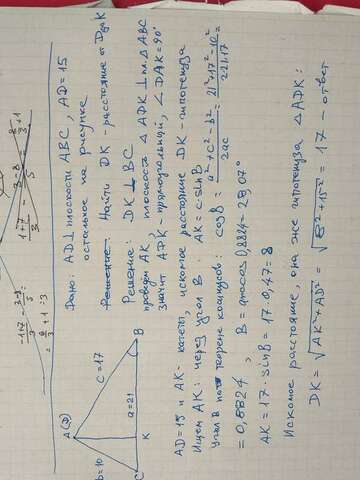 Дано: AD⊥ плоскости ABC, AD=15
остальное на рисунке
Решение Найти DK - расстояние от D до K
Решение: DK ⊥ BC
проведём AK, плоскость △ ADK ⊥ пл. △ABC
значит ADK - прямоугольный, ∠DAK = 90°
AD=15 и AK - катеты, искомое расстояние DK - гипотенуза
Ищем AK: через угол B: AK = c·sinB
Угол B по теореме косинусов: cosB = (a²+c²-b²)/2ac = (21²+17²-10²)/2·21·17 =
= 0,8824, B = arccos 0,8824 = 28,07°
AK = 17 · sinB = 17 · 0,47 = 8
Искомое расстояние, она же гипотенуза △ADK:
DK = √AK²+AD² = √8²+15² = 17 - ответ
A(D)
b=10
c=17
a=21
C
K
B